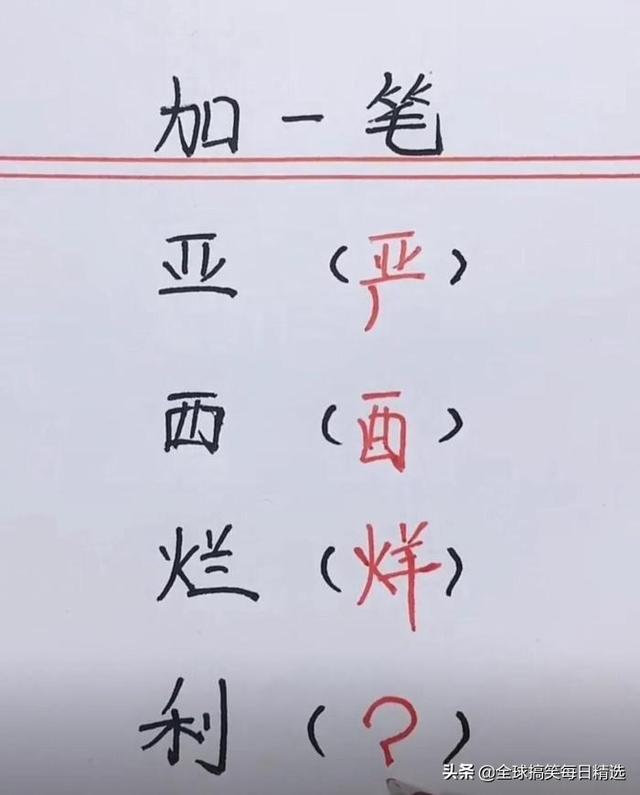 加一笔
亚（严）
西（酉）
烂（烊）
利（?）
头条 @全球搞笑每日精选